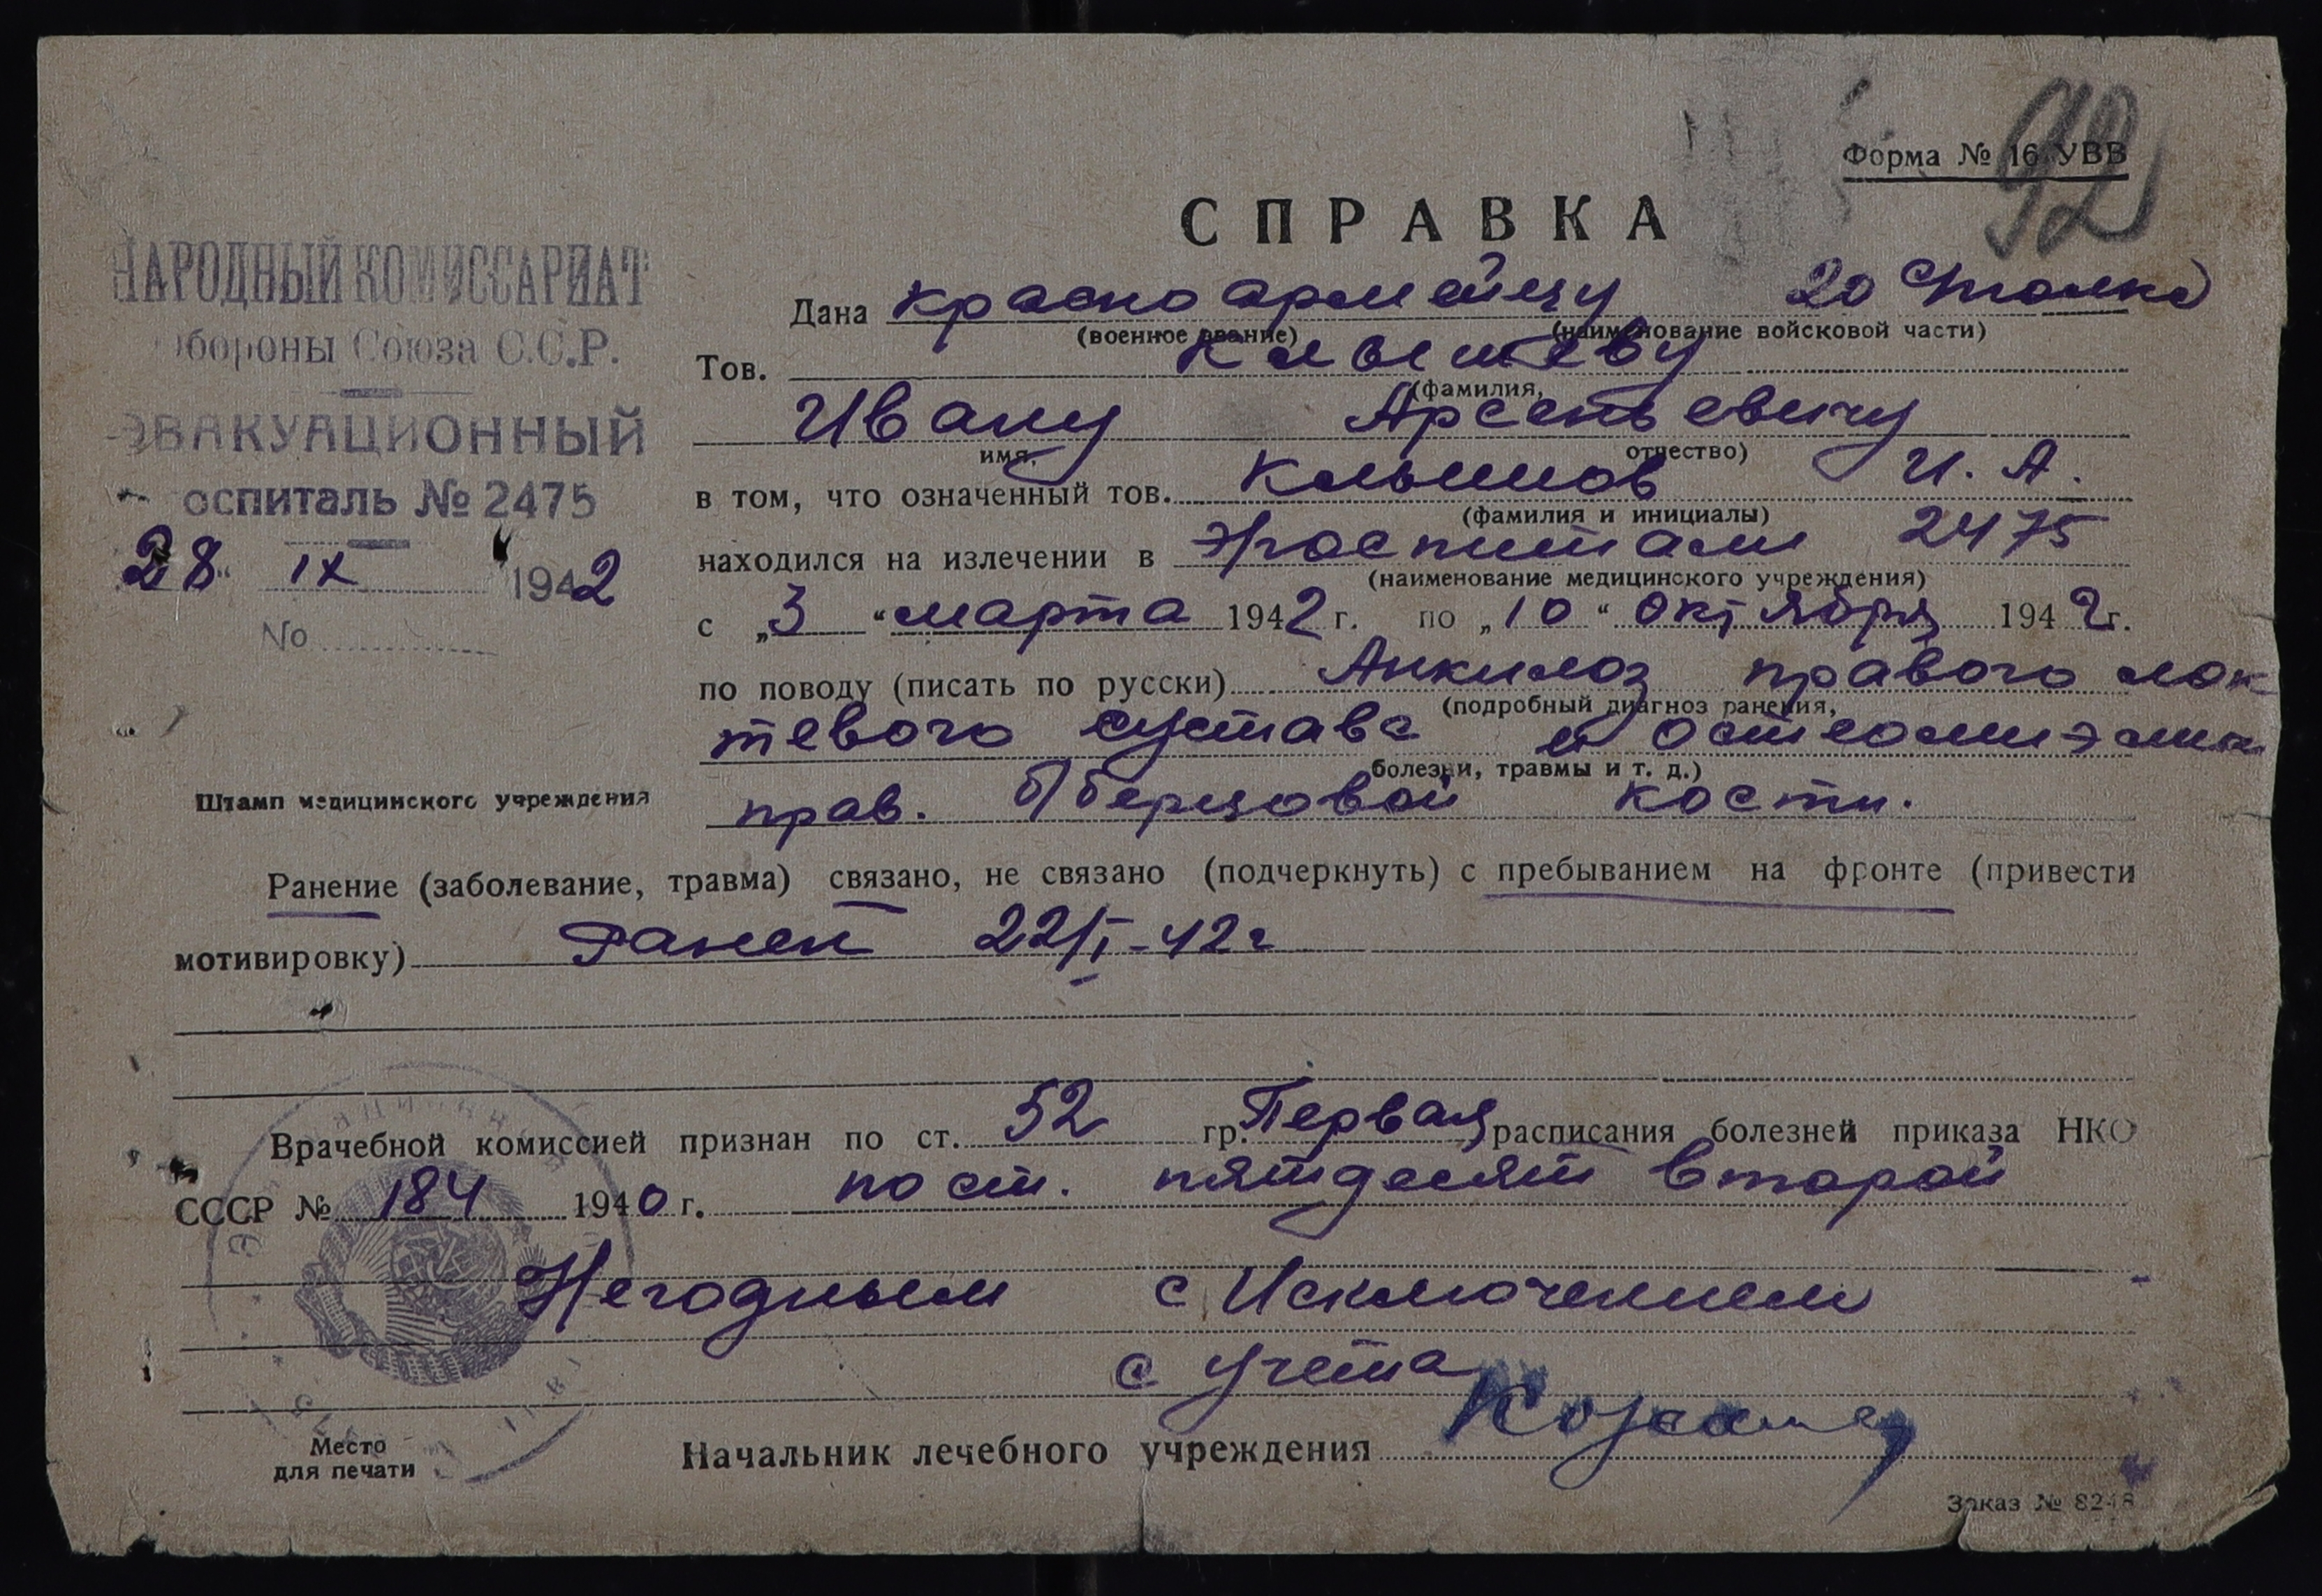 92
Форма № 16 УВВ
СПРАВКА
НАРОДНЫЙ КОМИССАРИАТ
обороны Союза С.С.Р.
ЭВАКУАЦИОННЫЙ
оспиталь № 2475
28 " IX 1942
No
Штамп медицинского учреждения
Дана красноармейцу 20
(военное звание) (наименование войсковой части)
Тов. Клышеву
(фамилия,
Ивану Арсентьевичу
имя, отчество)
в том, что означенный тов. Клышов И. А.
(фамилия и инициалы)
находился на излечении в Эгоспитали 2475
(наименование медицинского учреждения)
с „3 “ марта 1942 г. по „10 “ октября 1942г.
по поводу (писать по русски) Анкилоз правого лок
(подробный диагноз ранения,
тевого сустава и остеомиэлит
болезни, травмы и т. д.)
прав. б/берцовой кости.
Ранение (заболевание, травма) связано, не связано (подчеркнуть) с пребыванием на фронте (привести
мотивировку) Ранен 22/I-42г
Врачебной комиссией признан по ст. 52 гр. Первая расписания болезней приказа НКО
СССР № 184 1940 г. по ст. пятдесят второй
Негодным с Исключением
с учета
Место
для печати
Начальник лечебного учреждения
Заказ № 8248